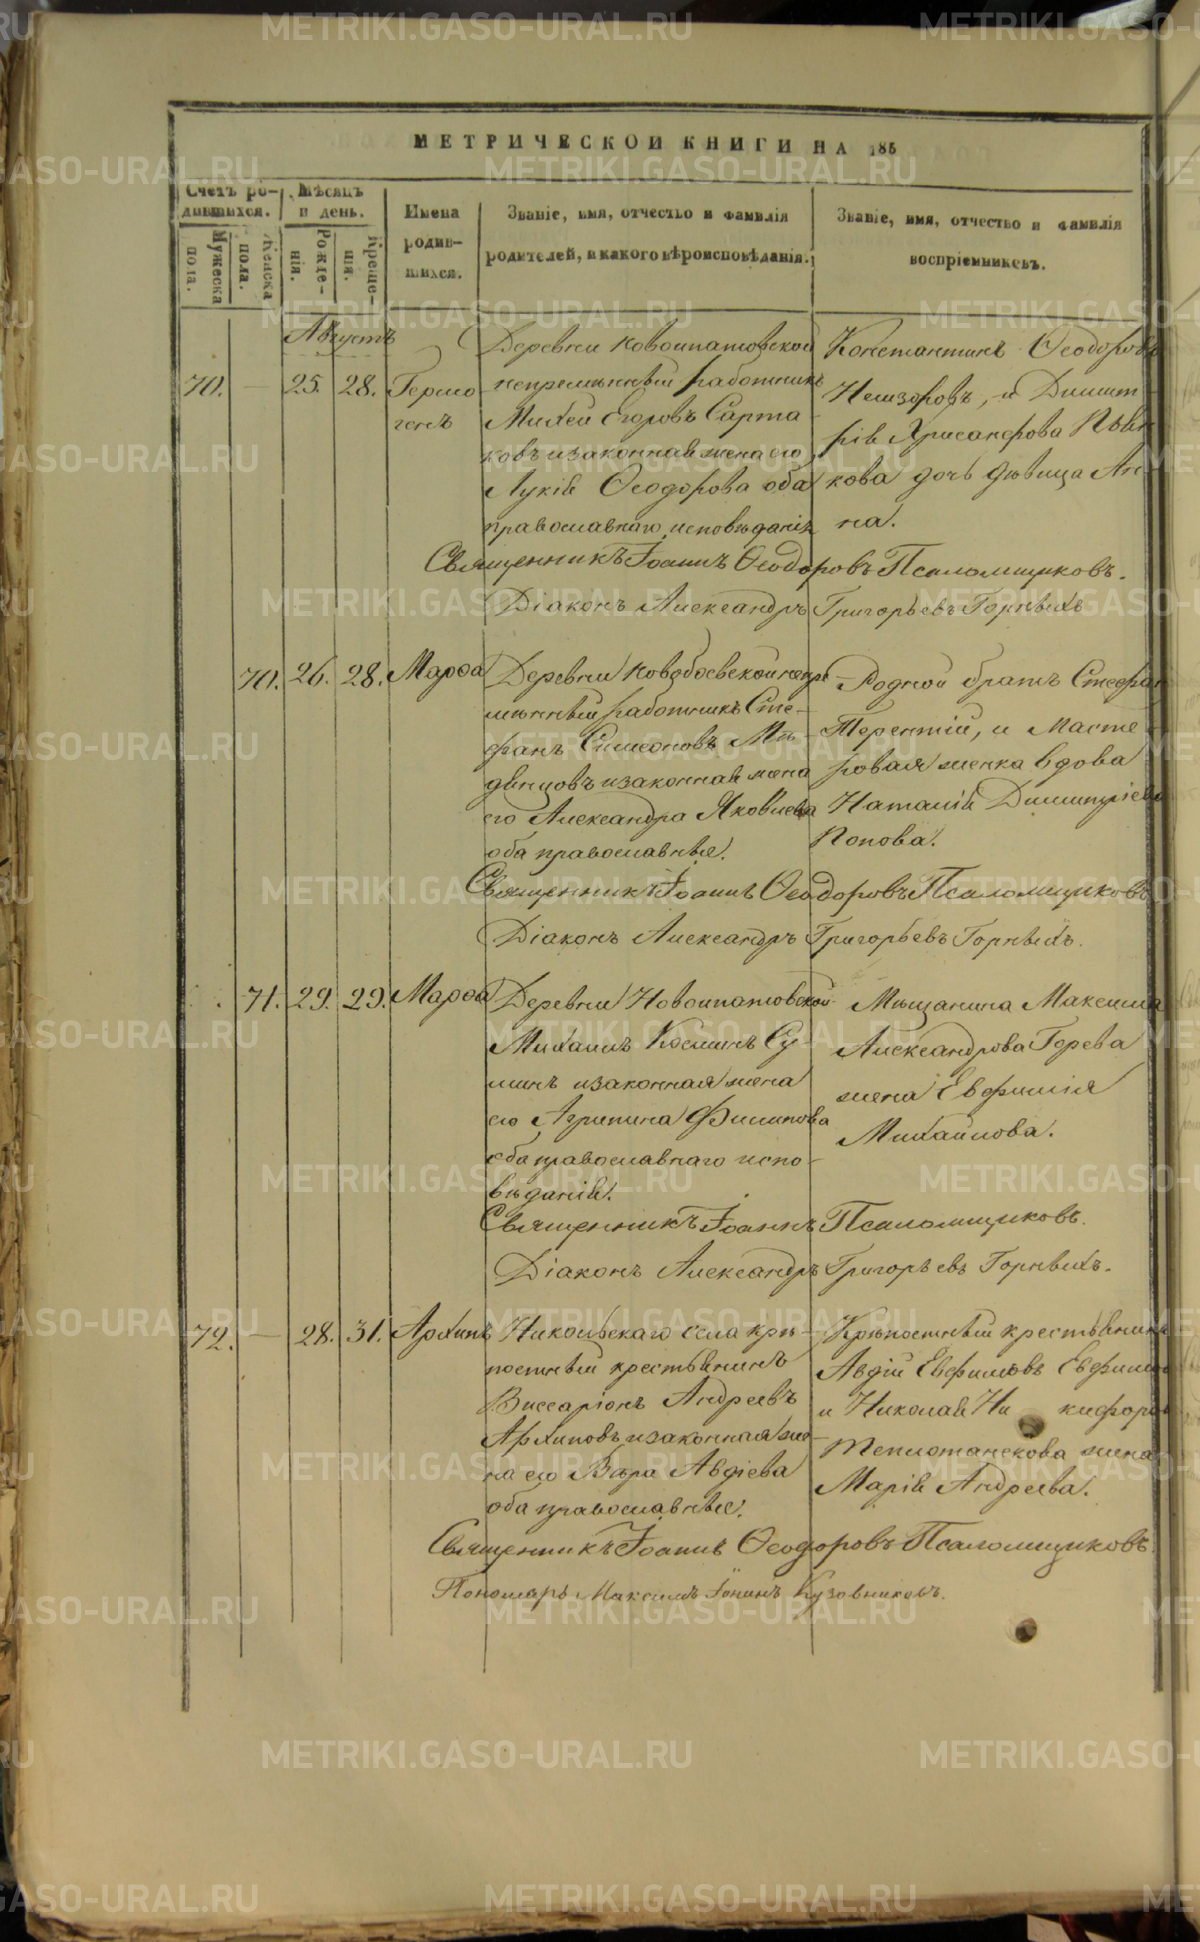 МЕТРИЧЕСКОЙ КНИГИ НА 185
Счетъ ро-
дившихся.
Мѣсяцъ
и день.
Имена
родив-
шихся.
Званіе, имя, отчество и фамилія
родителей, и какого вѣроисповѣданія.
Званіе, имя, отчество и фамилія
воспріемниковъ.
Мужеска
пола.
Женска
пола.
Рожде-
нія.
Креще-
нія.
Августъ
70. — 25. 28.
Гермо
генъ
Деревни Новоипатовской
непремѣнный работникъ
Михей Егоровъ Сарта
ковъ и законная жена его
Лукія Ѳеодорова оба
православнаго исповѣданія
Константинъ Ѳеодоровъ
, и Димит
рія Хрисанфова
кова дочь дѣвица Ан
на.
Священникъ Іоаннъ Ѳеодоровъ Псаломщиковъ.
Діаконъ Александръ Григорьевъ Горныхъ
70. 26. 28.
Марѳа
Деревни непре
мѣнный работникъ Сте-
фанъ Симеоновъ Мѣ-
и законная жена
его Александра Яковлева
оба православные.
Родной братъ Стефан
Терентій, и масте
ровая женка вдова
Наталія Димитріева
Попова.
Священникъ Іоаннъ Ѳеодоровъ Псаломщиковъ
Діаконъ Александръ Григорьевъ Горныхъ.
71. 29. 29.
Марѳа
Деревни Новоипатовской
Михаилъ Косминъ Су-
и законная жена
его Агрипина Филипова
оба православнаго испо-
вѣданія.
Мѣщанина Максима
Александрова Горева
жена Евфимія
Михайлова.
Священникъ Іоаннъ Псаломщиковъ.
Діаконъ Александръ Григорьевъ Горныхъ.
72. — 28. 31.
Архипъ
Никольскаго села крѣ-
постный крестьянинъ
Виссаріонъ Андреевъ
Архиповъ и законная же-
на его Вѣра Авдіева
оба православные.
Крѣпостный крестьянинъ
Авдій Евфимовъ Евфимов
и Николая Ни кифоров
Теплотанскова жена
Марія Андреева.
Священникъ Іоаннъ Ѳеодоровъ Псаломщиковъ.
Пономарь Максимъ Іонинъ Кузовниковъ.
METRIKI.GASO-URAL.RU